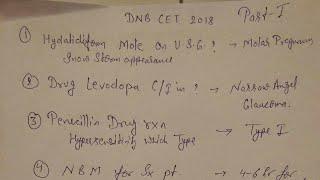 DNB CET 2018 Part-I
① Hydatidiform Mole on U.S.G.? → Molar Pregnancy
Snow Storm appearance
② Drug Levodopa C/I in? → Narrow Angel
Glaucoma.
③ Penicillin Drug rxn
Hypersensitivity which Type → Type I
④ NBM for Sx pt. → 4-6 hr for